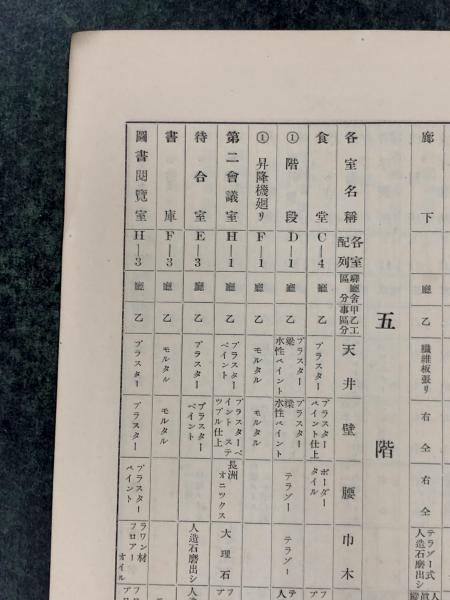 廊下
廳
乙
纖維板張リ
右仝
右仝
テラゾー式
人造石磨出シ
五階
各室名稱
各室配列
廳舍區分
甲乙工事區分
天井
壁
腰
巾木
食堂
C—4
廳
乙
プラスター
プラスター
ペイント仕上
ボーダー
タイル
①階段
D—1
廳
乙
梁プラスター
水性ペイント
梁プラスター
水性ペイント
テラゾー
テラゾー
①昇降機廻リ
F—1
廳
乙
モルタル
モルタル
第二會議室
H—1
廳
乙
プラスター
ペイント
プラスターペ
イントステ
ツプル仕上
長洲
オニツクス
大理石
待合室
E—3
廳
乙
プラスター
プラスター
ペイント
人造石磨出シ
書庫
F—3
廳
乙
モルタル
モルタル
圖書閱覽室
H—3
廳
乙
プラスター
プラスター
プラスター
ペイント
ラワン材
フロアー
オイル